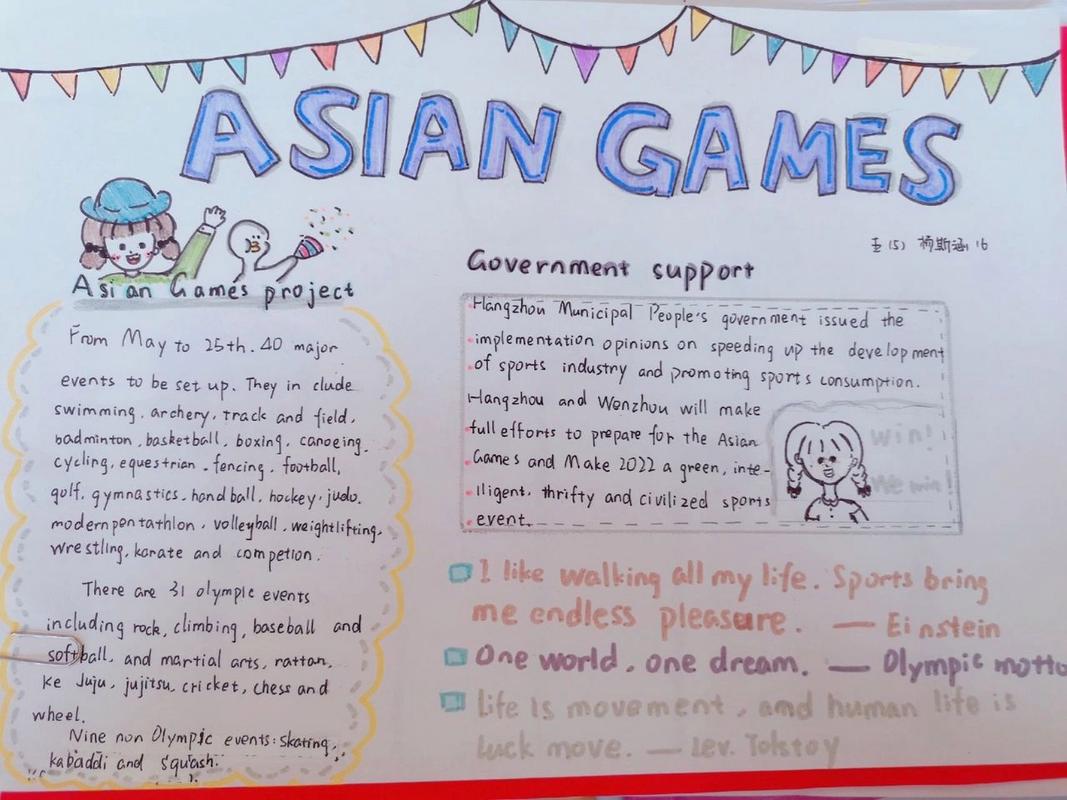 ASIAN GAMES
五(5) 杨斯涵 16
Asian Games project
From May to 25th. 40 major
events to be set up. They in clude
swimming. archery, track and field,
badminton, basketball, boxing, canoeing,
cycling, equestrian. fencing. football,
golf, gymnastics. handball, hockey. judo.
modern pentathlon, volleyball. weightlifting,
wrestling, karate and competion.
There are 31 olympic events
including rock, climbing, baseball and
softball, and martial arts, rattan,
Ke Juju, jujitsu, cricket, chess and
wheel.
Nine non Olympic events: skating,
kabaddi and squash.
Government support
Hangzhou Municipal People's government issued the
implementation opinions on speeding up the development
of sports industry and promoting sports consumption.
Hangzhou and Wenzhou will make
full efforts to prepare for the Asian
Games and Make 2022 a green, inte-
lligent, thrifty and civilized sports
event.
win!
We win!
I like walking all my life. Sports bring
me endless pleasure. — Einstein
One world, one dream. — Olympic motto
Life is movement, and human life is
luck move. — Lev. Tolstoy